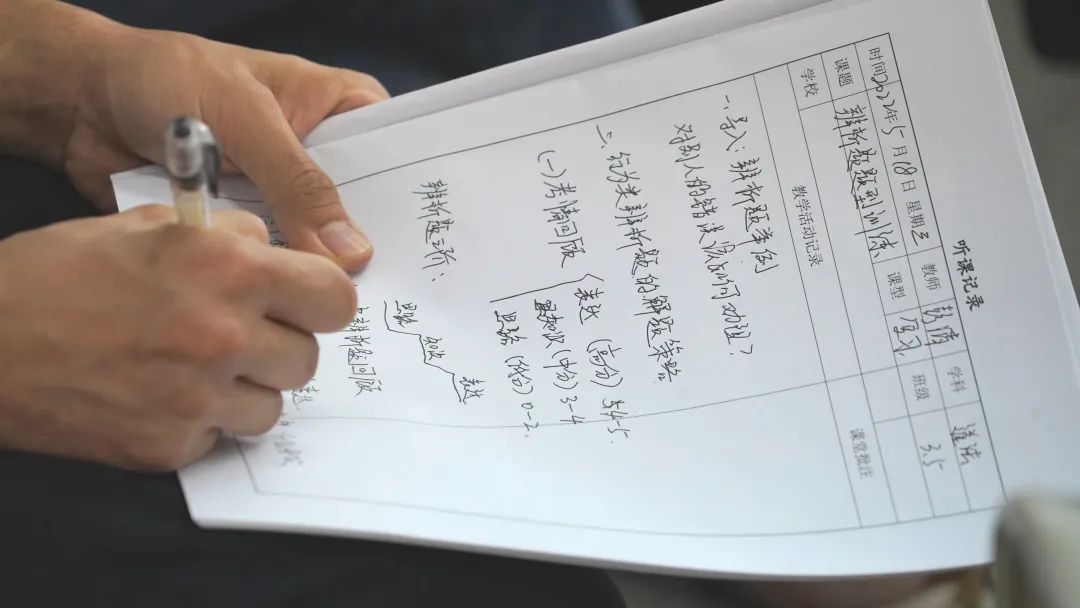 听课记录
时间 2022年5月18日 星期三 教师 学科 道法
课题 辨析题题型训练 课型 复习 班级 3.5
学校
教学活动记录 课堂批注
一、导入：辨析题举例
对别人的错误该如何劝阻？
二、行为类辨析题的解题策略
(一)考情回顾
表达（高分）5
知识（中分）3-4
思路（低分）0-2
辨析题三阶：
思路 知识 表达
辨析题回顾